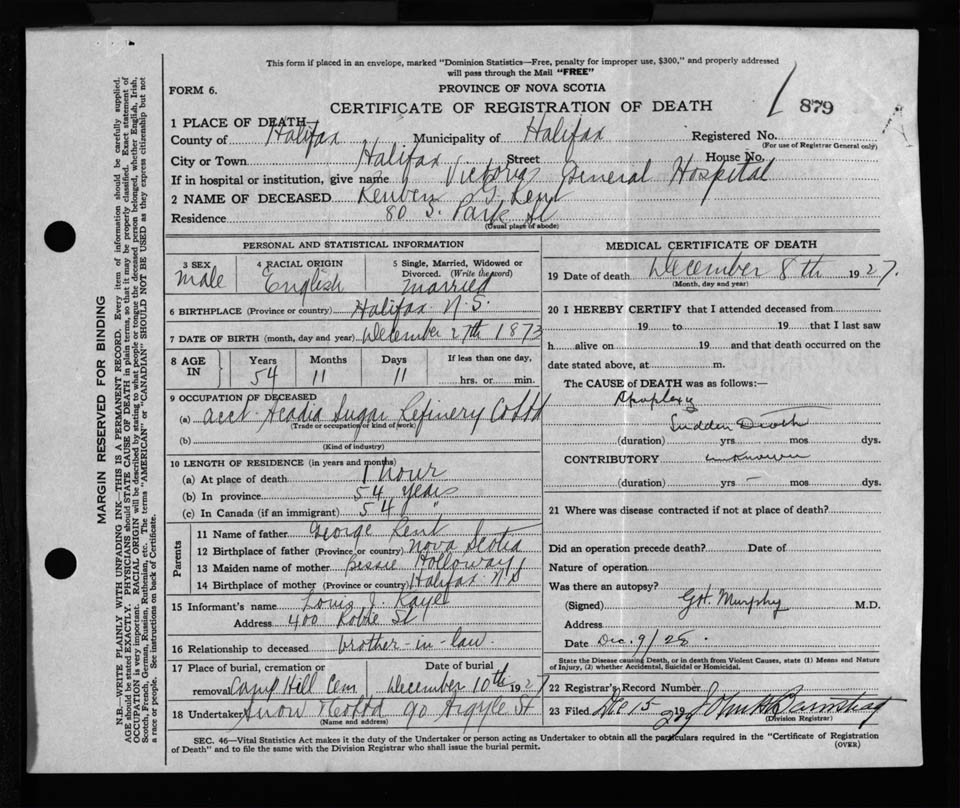 This form if placed in an envelope, marked "Dominion Statistics—Free, penalty for improper use, $300," and properly addressed
will pass through the Mail "FREE"
FORM 6.
PROVINCE OF NOVA SCOTIA
879
CERTIFICATE OF REGISTRATION OF DEATH
1 PLACE OF DEATH
County of Halifax Municipality of Halifax Registered No.
(For use of Registrar General only)
City or Town Halifax Street House No.
If in hospital or institution, give name Victoria General Hospital
2 NAME OF DECEASED Reuben Kent
Residence 80 S. Park St
(Usual place of abode)
PERSONAL AND STATISTICAL INFORMATION
3 SEX 4 RACIAL ORIGIN 5 Single, Married, Widowed or
Divorced. (Write the word)
Male English Married
6 BIRTHPLACE (Province or country) Halifax N.S.
7 DATE OF BIRTH (month, day and year) December 27th 1873
8 AGE IN Years Months Days If less than one day,
54 11 11 hrs. or min.
9 OCCUPATION OF DECEASED
(a) acct. Acadia Sugar Refinery Co Ltd
(Trade or occupation or kind of work)
(b)
(Kind of industry)
10 LENGTH OF RESIDENCE (in years and months)
(a) At place of death 1 hour
(b) In province 54 years
(c) In Canada (if an immigrant) 54 "
Parents
11 Name of father George Kent
12 Birthplace of father (Province or country) Nova Scotia
13 Maiden name of mother Bessie Holloway
14 Birthplace of mother (Province or country) Halifax N S
15 Informant's name Louis J. Kaye
Address 400 Robie St
16 Relationship to deceased brother-in-law.
17 Place of burial, cremation or Date of burial
removal Camp Hill Cem. December 10th 1927
18 Undertaker Snow & Co Ltd 90 Argyle St
(Name and address)
MEDICAL CERTIFICATE OF DEATH
19 Date of death December 8th 1927.
(Month, day and year)
20 I HEREBY CERTIFY that I attended deceased from
19 to 19 that I last saw
h alive on 19 and that death occurred on the
date stated above, at m.
The CAUSE of DEATH was as follows:—
Apoplexy
Sudden Death
(duration) yrs. mos. dys.
CONTRIBUTORY unknown
(duration) yrs. — mos. dys.
21 Where was disease contracted if not at place of death?
Did an operation precede death? Date of
Nature of operation
Was there an autopsy?
(Signed) Murphy M.D.
Address
Date Dec. 9/28.
State the Disease causing Death, or in death from Violent Causes, state (1) Means and Nature
of Injury, (2) whether Accidental, Suicidal or Homicidal.
22 Registrar's Record Number
23 Filed Dec 15 19 John
(Division Registrar)
SEC. 46—Vital Statistics Act makes it the duty of the Undertaker or person acting as Undertaker to obtain all the particulars required in the "Certificate of Registration
of Death" and to file the same with the Division Registrar who shall issue the burial permit.
(OVER)
MARGIN RESERVED FOR BINDING
N.B.—WRITE PLAINLY WITH UNFADING INK—THIS IS A PERMANENT RECORD. Every item of information should be carefully supplied.
AGE should be stated EXACTLY. PHYSICIANS should STATE CAUSE OF DEATH in plain terms, so that it may be properly classified. Exact statement of
OCCUPATION is very important. RACIAL ORIGIN will be described by stating to what people or tongue the deceased person belonged, whether English, Irish,
Scotch, French, German, Russian, Ruthenian, etc. The terms "AMERICAN" or "CANADIAN" SHOULD NOT BE USED as they express citizenship but not
a race or people. See instructions on back of Certificate.